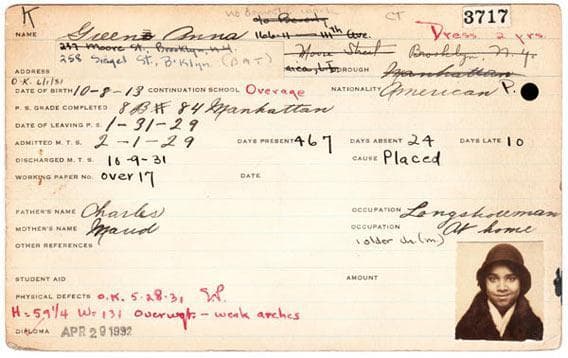 K CT 3717
NAME Greene Anna 166-11 - 111th Ave. Dress 2 yrs.
237 Moore St., Brooklyn, N.Y. Moore Street Brooklyn, N.Y.
258 Siegel St., B'klyn (DAT) BOROUGH Manhattan
ADDRESS
O.K. 6/1/31
DATE OF BIRTH 10-8-13 CONTINUATION SCHOOL Overage NATIONALITY American P.
P. S. GRADE COMPLETED 8B # 84 Manhattan
DATE OF LEAVING P.S. 1-31-29
ADMITTED M. T. S. 2-1-29 DAYS PRESENT 467 DAYS ABSENT 24 DAYS LATE 10
DISCHARGED M. T. S. 10-9-31 CAUSE Placed
WORKING PAPER NO. over 17 DATE
FATHER'S NAME Charles OCCUPATION Longshoreman
MOTHER'S NAME Maud OCCUPATION At home
OTHER REFERENCES 1 older (m)
STUDENT AID AMOUNT
PHYSICAL DEFECTS O.K. 5-28-31 W.
H=59 1/4 W=131 Overwgt - weak arches
DIPLOMA APR 29 1932